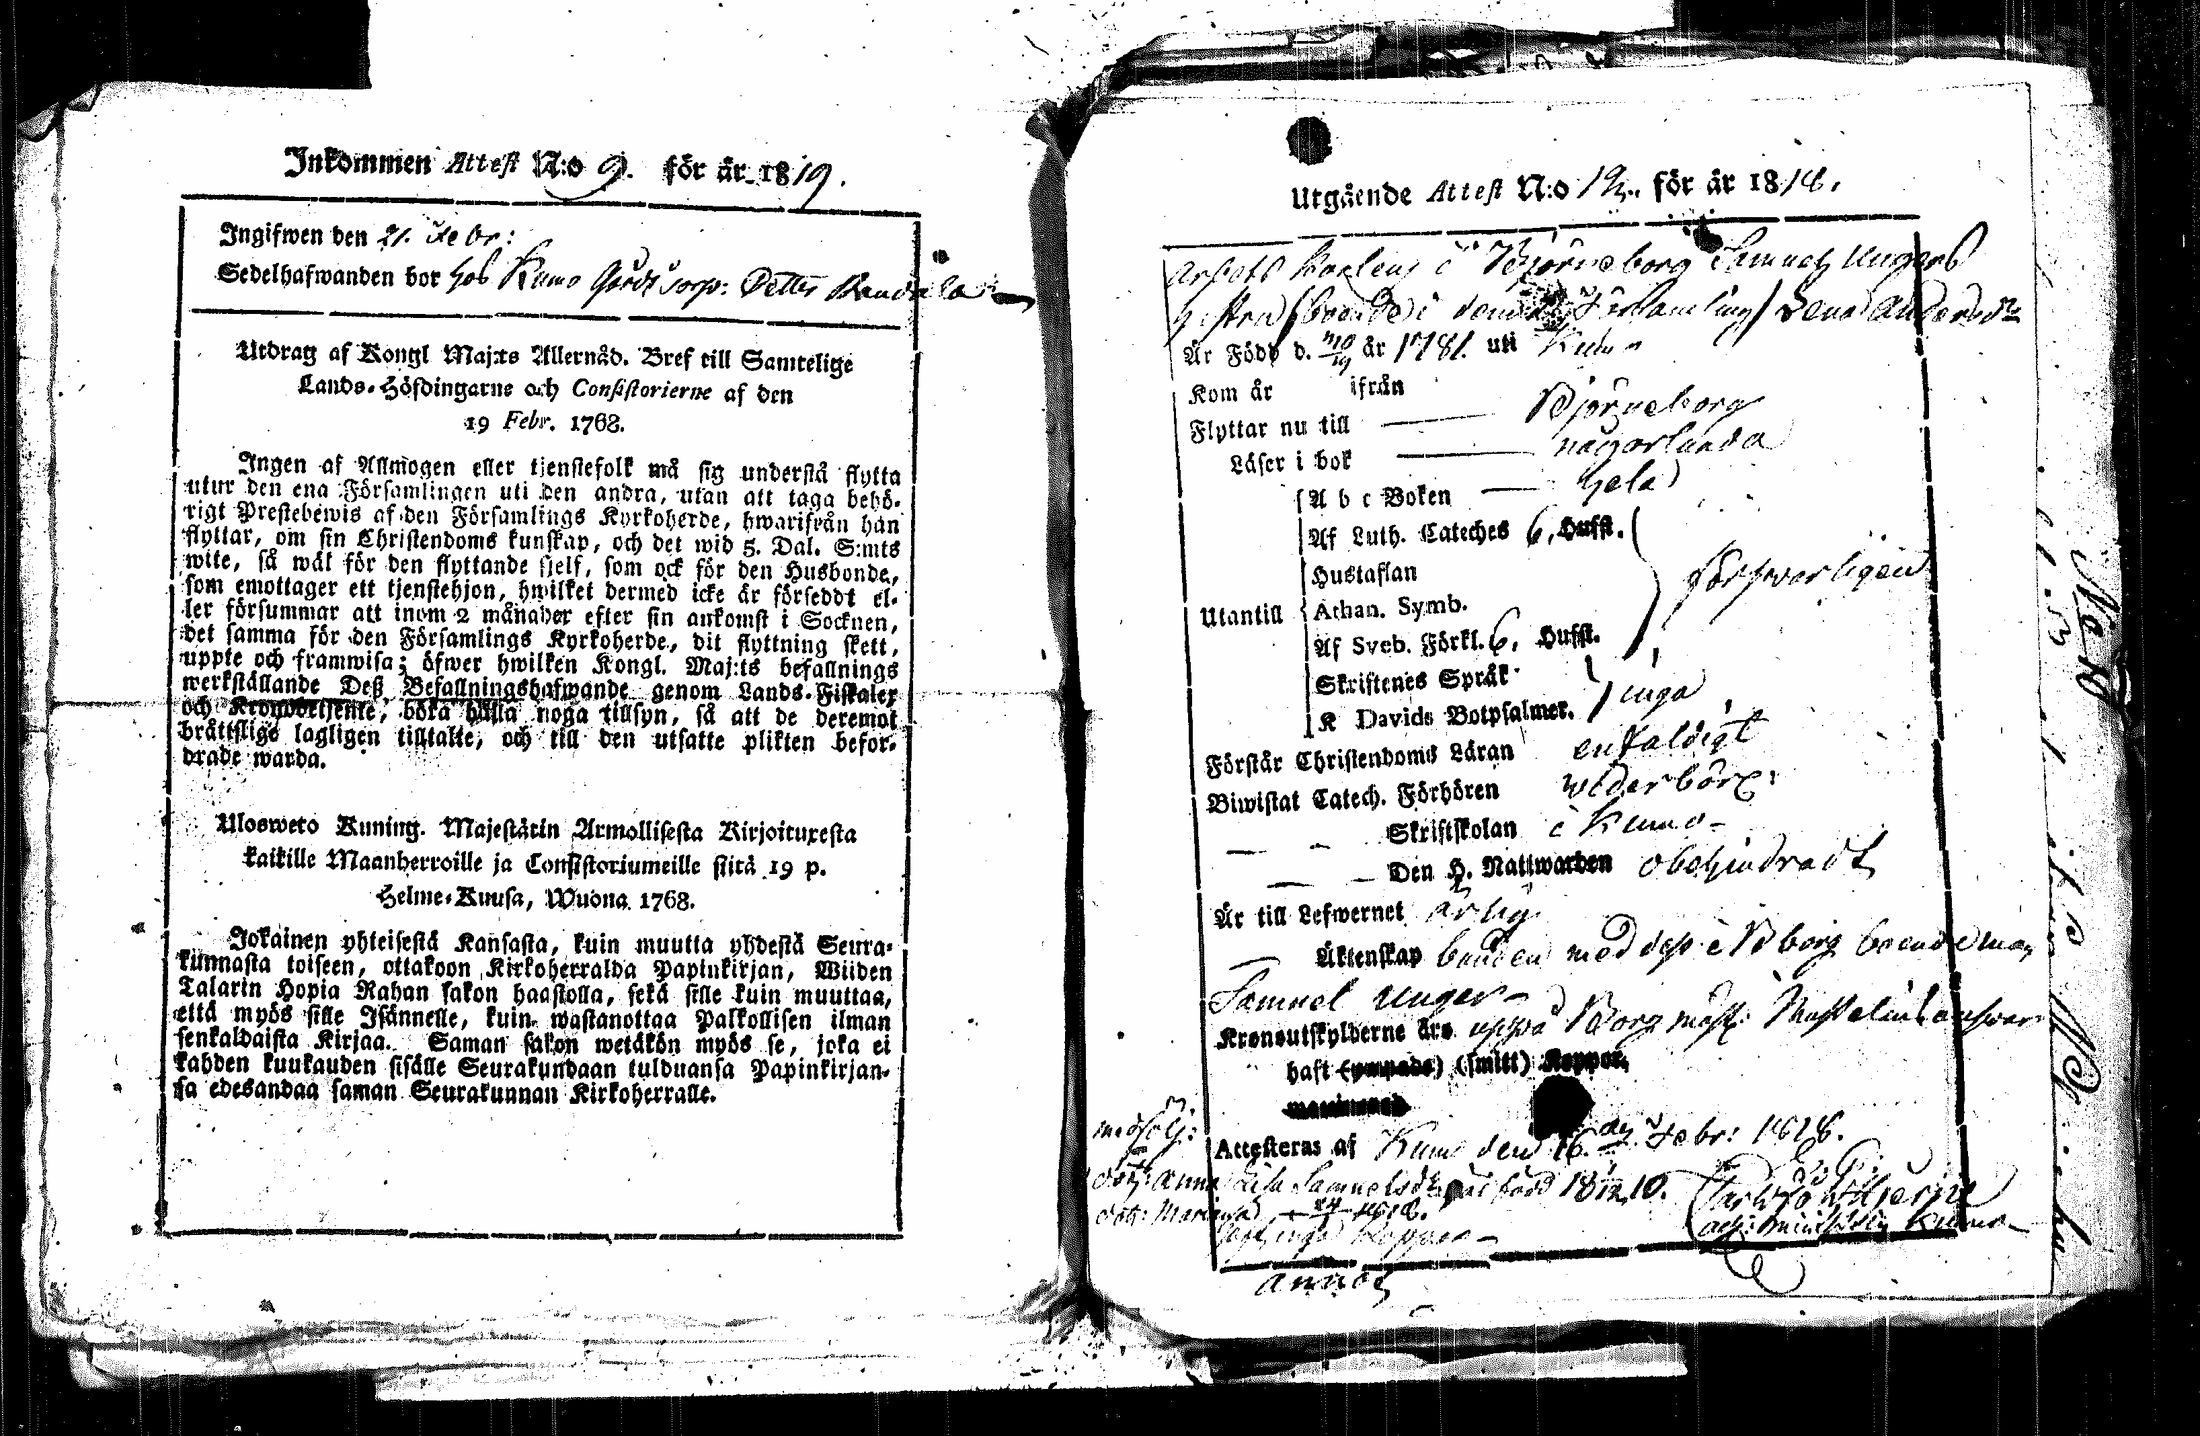 Inkommen Attest N:o 9. för år 1819.
Ingifwen den 21. Febr:
Sedelhafwanden bor hos Kumo Gårds torp: Petter
Utdrag af Kongl Maj:ts Allernåd. Bref till Samtelige
Lands-Höfdingarne och Consistorierne af den
19 Febr. 1768.
Ingen af Allmogen eller tjenstefolk må sig understå flytta
utur den ena Församlingen uti den andra, utan att taga behö-
rigt Prestebewis af den Församlings Kyrkoherde, hwarifrån han
flyttar, om sin Christendoms kunskap, och det wid 5. Dal. S:mts
wite, så wäl för den flyttande sjelf, som ock för den Husbonde,
som emottager ett tjenstehjon, hwilket dermed icke är förseddt el-
ler försummar att inom 2 månader efter sin ankomst i Socknen,
det samma för den Församlings Kyrkoherde, dit flyttning skett,
uppte och framwisa; öfwer hwilken Kongl. Maj:ts befallnings
werkställande Deß Befallningshafwande genom Lands-Fiskaler
och Kronobetjente, böra hålla noga tillsyn, så att de deremot
bråttslige lagligen tilltalte, och till den utsatte plikten befor-
drade warda.
Ulosweto Kuning. Majestätin Armollisesta Kirjoituxesta
kaikille Maanherroille ja Consistoriumeille siitä 19 p.
Helme-Kuusa, Wuona 1768.
Jokainen yhteisestä Kansasta, kuin muutta yhdestä Seura-
kunnasta toiseen, ottakoon Kirkoherralda Papinkirjan, Wiiden
Talarin Hopia Rahan sakon haastolla, sekä sille kuin muuttaa,
että myös sille Isännelle, kuin wastanottaa Palkollisen ilman
senkaldaista Kirjaa. Saman sakon wetäkön myös se, joka ei
kahden kuukauden sisälle Seurakundaan tulduansa Papinkirjan-
sa edesandaa saman Seurakunnan Kirkoherralle.
Utgående Attest N:o 12. för år 1818.
Arbets Karlens i Björneborg Samuel Ungers
hustru (boende i denna Församling) Lena Andersdr
Är Född d. 10/19 år 1781. uti Kumo
Kom år ifrån
Flyttar nu till Björneborg
Läser i bok någorlunda
A b c Boken hela
Af Luth. Cateches 6, Hufst.
Hustaflan
Utantill Athan. Symb. försvarligen
Af Sveb. Förkl. 6, Hufst.
Skriftenes Språk
K Davids Botpsalmer. inga
Förstår Christendoms Läran enfaldigt
Biwistat Catech. Förhören wederbörl:
Skriftskolan i Kumo
Den H. Nattwarden obehindradt
Är till Lefwernet ärlig
Äktenskap bunden med dess i Bborg boende man
Samuel Unger
Kronoutskylderne äro uppå Borgmäst: answar
haft (ympade) (smitt) Koppor.
medfölj:
Attesteras af Kumo den 16 Febr: 1818.
dotr: Anna Lisa Samuelsdr född 18 10.
dotr: Maria 24 1818.
haft inga Koppor
annot